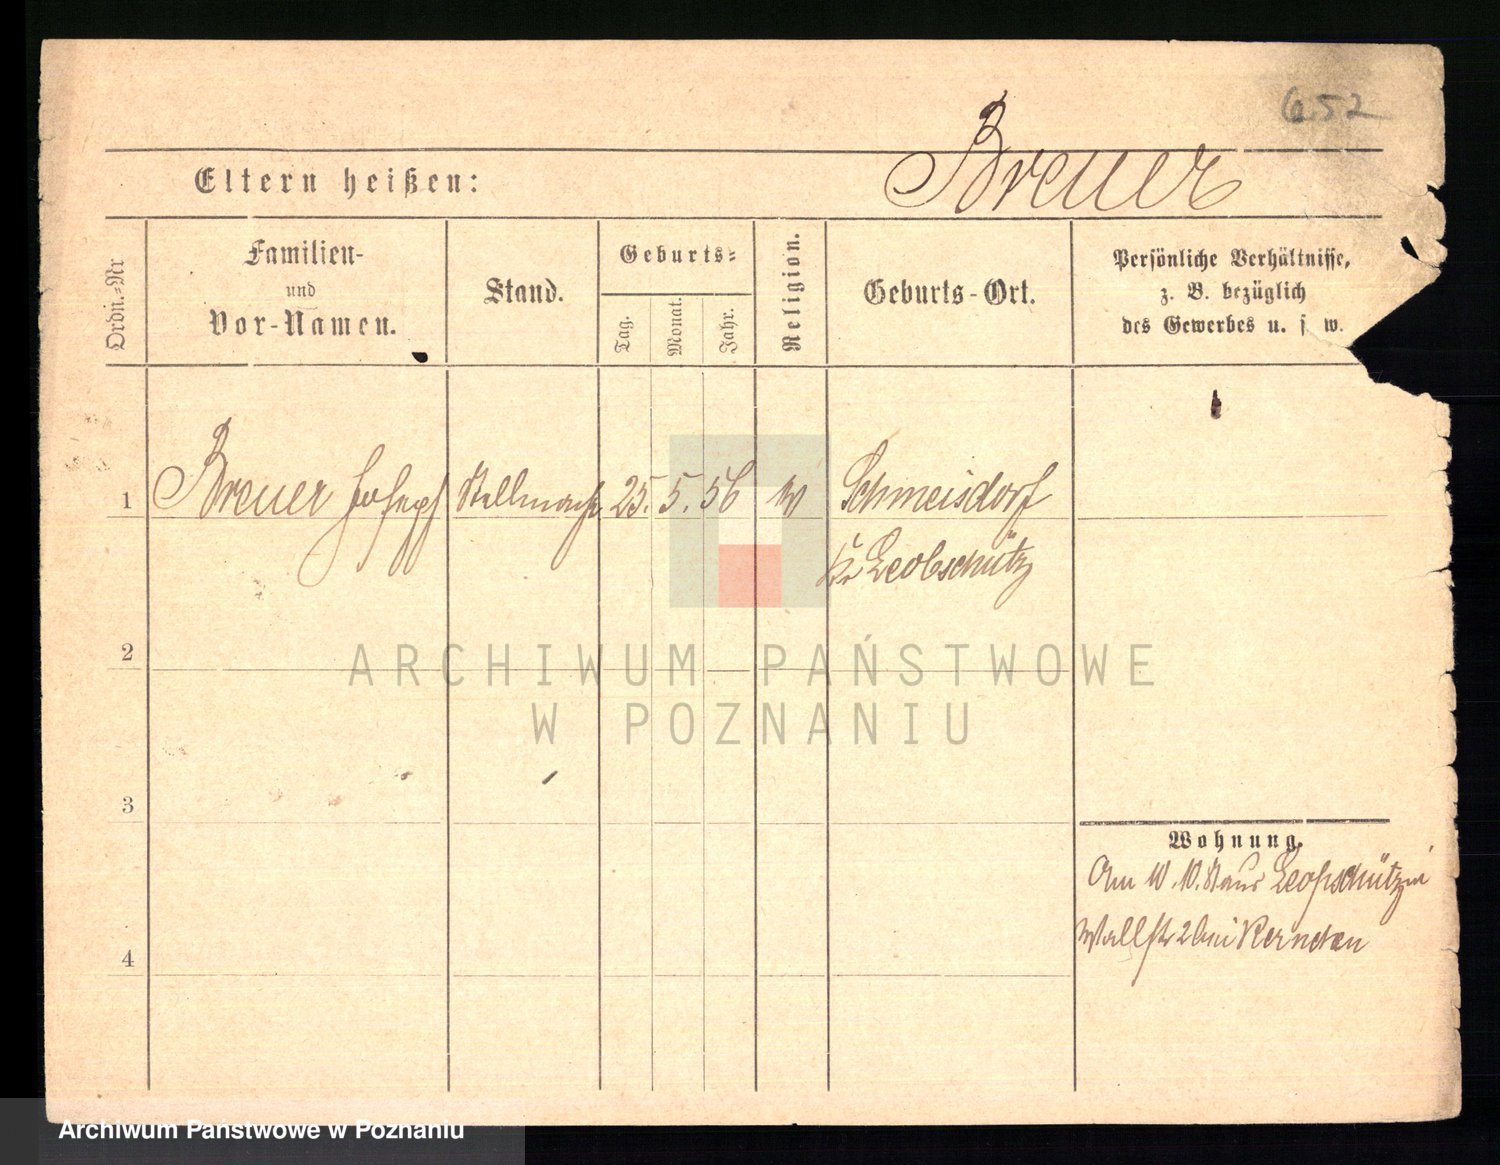 652
Eltern heißen: Breuer
Ordn.-Nr
Familien-
und
Vor-Namen.
Stand.
Geburts-
Tag.
Monat.
Jahr.
Religion.
Geburts-Ort.
Persönliche Verhältnisse,
z. B. bezüglich
des Gewerbes u. s w.
1 Breuer Joseph Stellmach 25. 5. 56 Schmeisdorf
Kr Leobschütz
2
3
4
Wohnung.
Am 10. aus Leobschütz
Wallstr 2 bei
ARCHIWUM PAŃSTWOWE
W POZNANIU
Archiwum Państwowe w Poznaniu